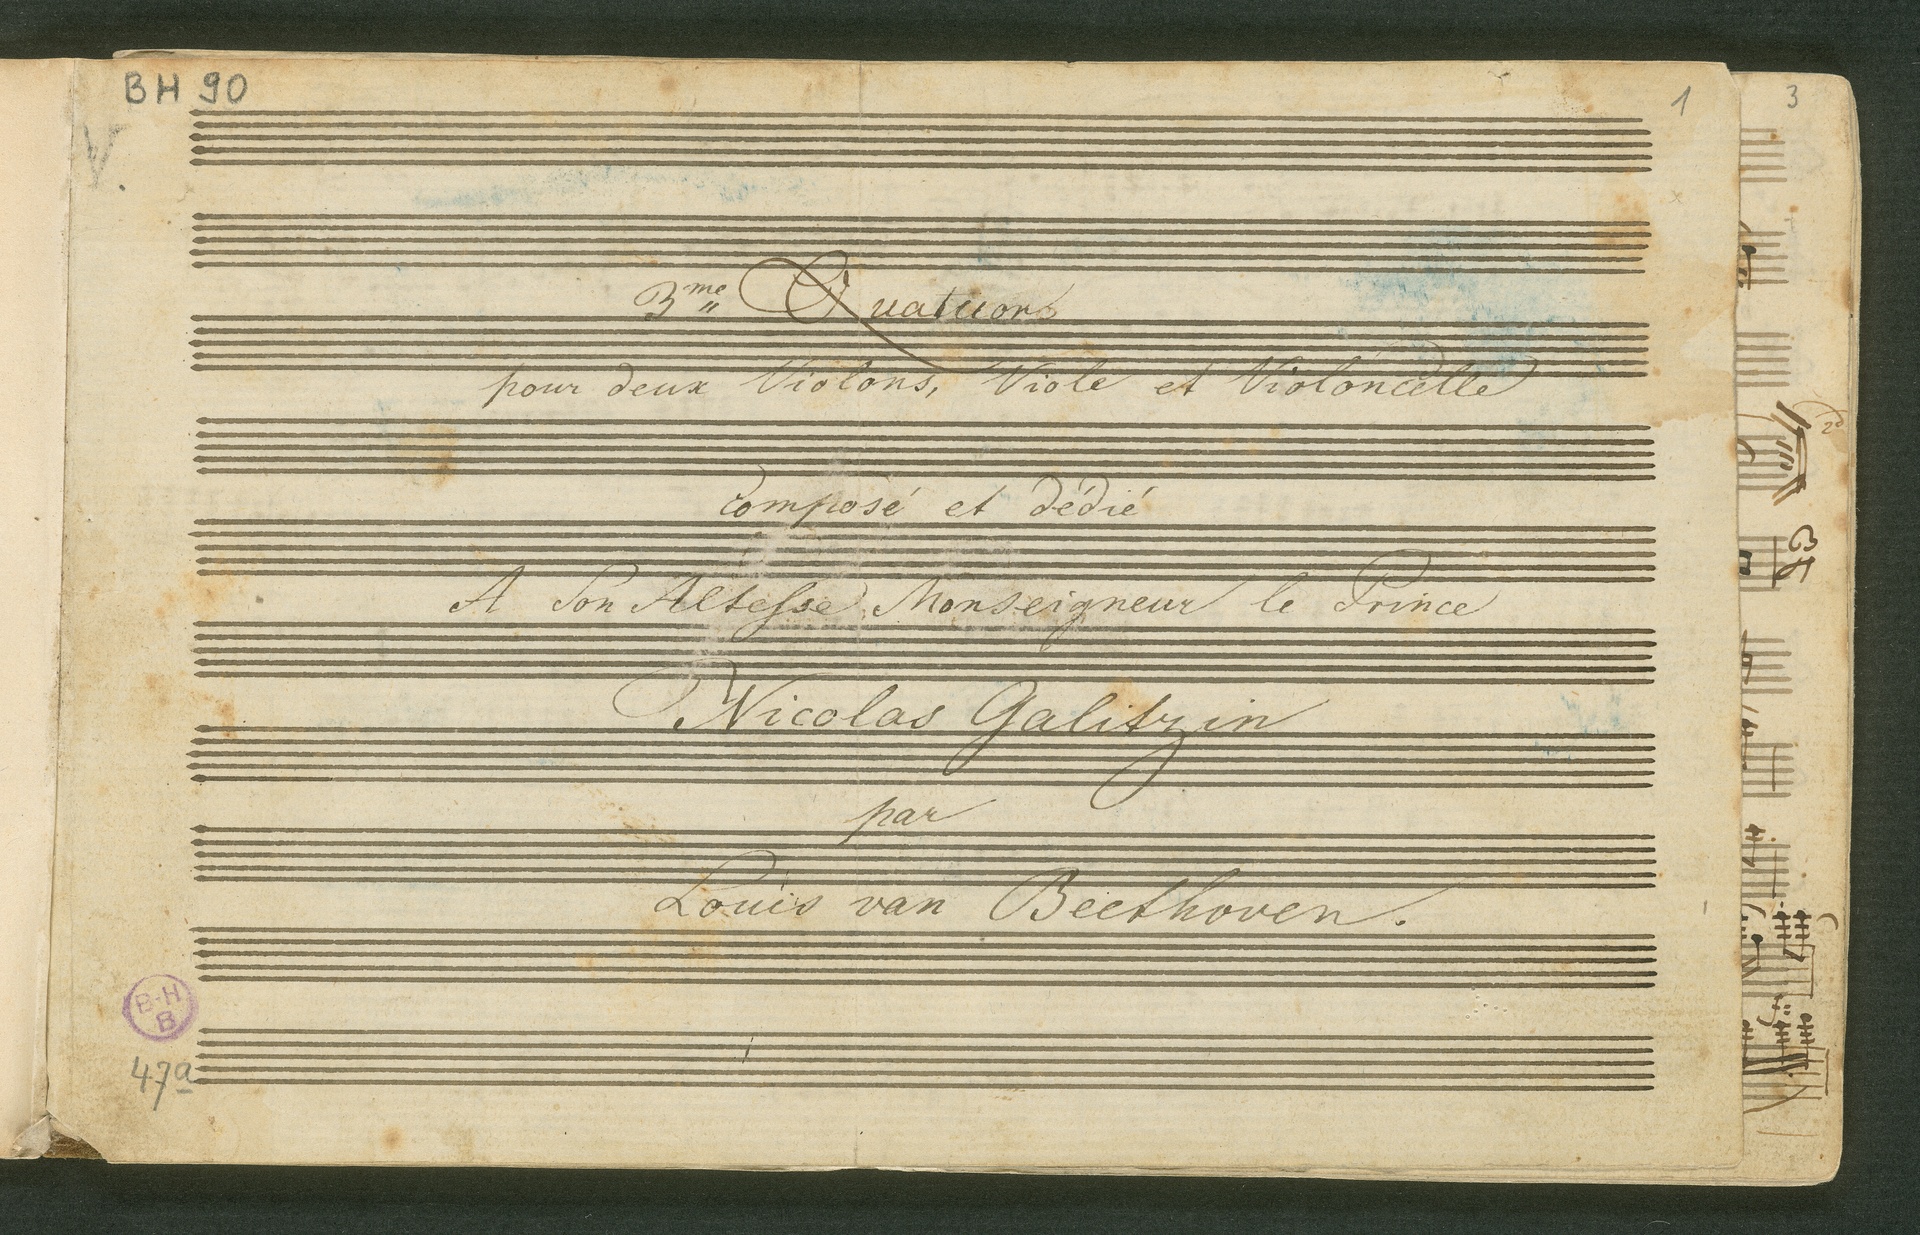 BH 90
1
3
V.
3me Quatuors
pour deux Violons, Viole et Violoncelle
2d
composé et dédié
A Son Altesse Monseigneur le Prince
Nicolas Galitzin
par
Louis van Beethoven.
B-H
B
47a